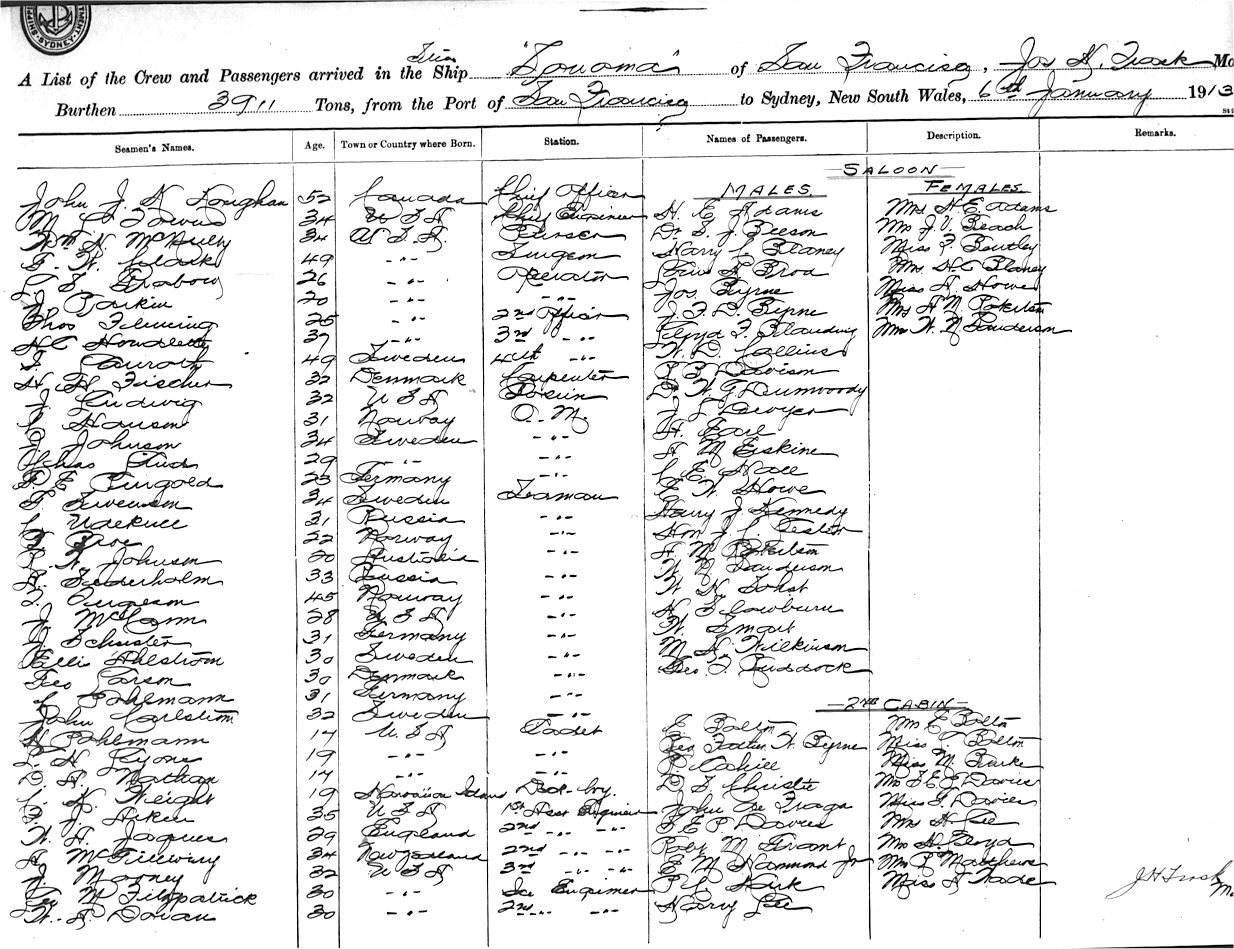 SHIPPING
SYDNEY
A List of the Crew and Passengers arrived in the Ship "Sonoma" of San Francisco, Jos H. Trask Ma
Burthen 3911 Tons, from the Port of San Francisco to Sydney, New South Wales, 6th January 1913
Seamen's Names. Age. Town or Country where Born. Station. Names of Passengers. Description. Remarks.
SALOON
MALES. FEMALES.
John J. K. 52 Canada Chief Officer H. E Adams Mrs H. E Adams
M 34 U S A Chief Engineer Dr S. J. Beeson Mrs J. V. Beach
Wm H. 34 U. S. A. Purser Harry C Blaney Miss Bentley
F. W. Clark 49 -"- Surgeon Broa Mrs H C Blaney
L S. Grabow 26 -"- Operator Jos Byrne Miss A Howe
J. Parkin 20 -"- -"- J. F. D. Byrne Mrs A M
Thos Fleming 25 -"- 2nd Officer Lloyd F. Blanding Mrs W. N. Sanderson
H C Houdlette 37 -"- 3rd -"- W. D. Collins
49 Sweden 4th -"- P B. Davison
H. F. Fischer 32 Denmark Carpenter Dr W G Dunwoody
J. Ludwig 32 U S A J L Dwyer
Hanson 31 Norway Q. M. H. Earl
J. Johnson 34 Sweden -"- A M Erskine
Chas 29 -"- -"- C E Hall
F. E. Pingold 23 Germany -"- E W Howe
F. Swenson 34 Sweden Seaman Harry J Kennedy
31 Russia -"- Hon J. C.
22 Norway -"- A. M
P. W. Johnson 20 Australia -"- W N Sanderson
A. Soderholm 33 Russia -"- W. H.
45 Norway -"- H. S Cowburn
J McCann 28 U S A -"- W. Smart
J Schuster 31 Germany -"- M H Wilkinson
Elli Ahlstrom 30 Sweden -"- Geo. F. Ruddock
Geo Larson 30 Denmark -"-
Pohlmann 31 Germany -"-
2ND CABIN
John Carlstrom 32 Sweden -"- E Bolton Mrs E Bolton
H Pohlmann 17 U S A Cadet W. Byrne Miss Bolton
H Lyons 19 -"- -"- P Cahill Miss M. Burke
D A. Nathan 17 -"- -"- D S Christie Mrs S. E. P Davies
Weight 19 Hawaiian Islands Deck-boy. John De Fraga Miss G. Davies
F. J Aitken 35 U S A 1st Asst Engineer S E P Davies Mrs H Lee
W. H. Jaques 29 England 2nd -"- -"- Robt M Grant Mrs H. Boyd
A McGillivary 34 New Zealand 2nd -"- -"- E M Hammond Jr Mrs P Matthews
J Mooney 32 U S A 3rd -"- -"- Miss A Wade
Geo M Fitzpatrick 30 -"- Ice Engineer Harry Lee
W. A Dorian 30 -"- 2nd -"-
J H Trask
Ma